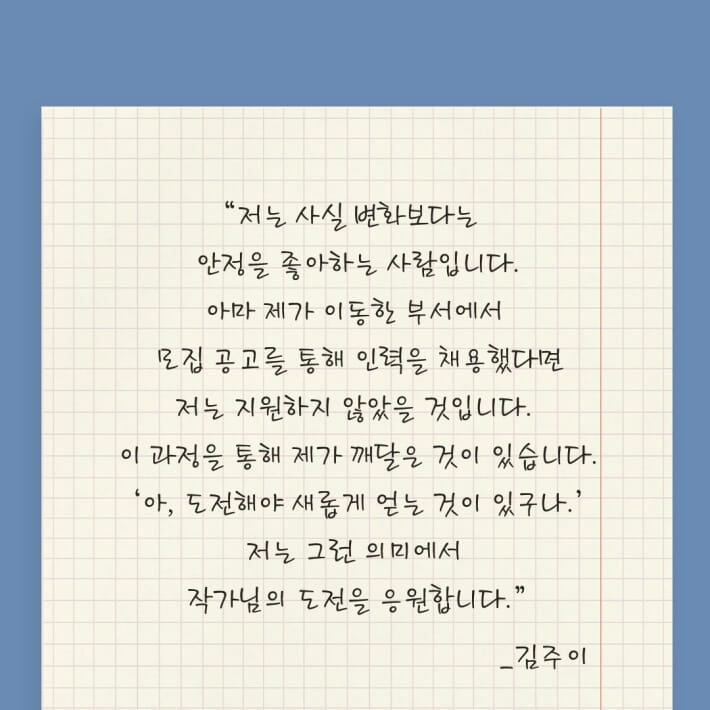 “저는 사실 변화보다는
안정을 좋아하는 사람입니다.
아마 제가 이동한 부서에서
모집 공고를 통해 인력을 채용했다면
저는 지원하지 않았을 것입니다.
이 과정을 통해 제가 깨달은 것이 있습니다.
‘아, 도전해야 새롭게 얻는 것이 있구나.’
저는 그런 의미에서
작가님의 도전을 응원합니다.”
_김주이